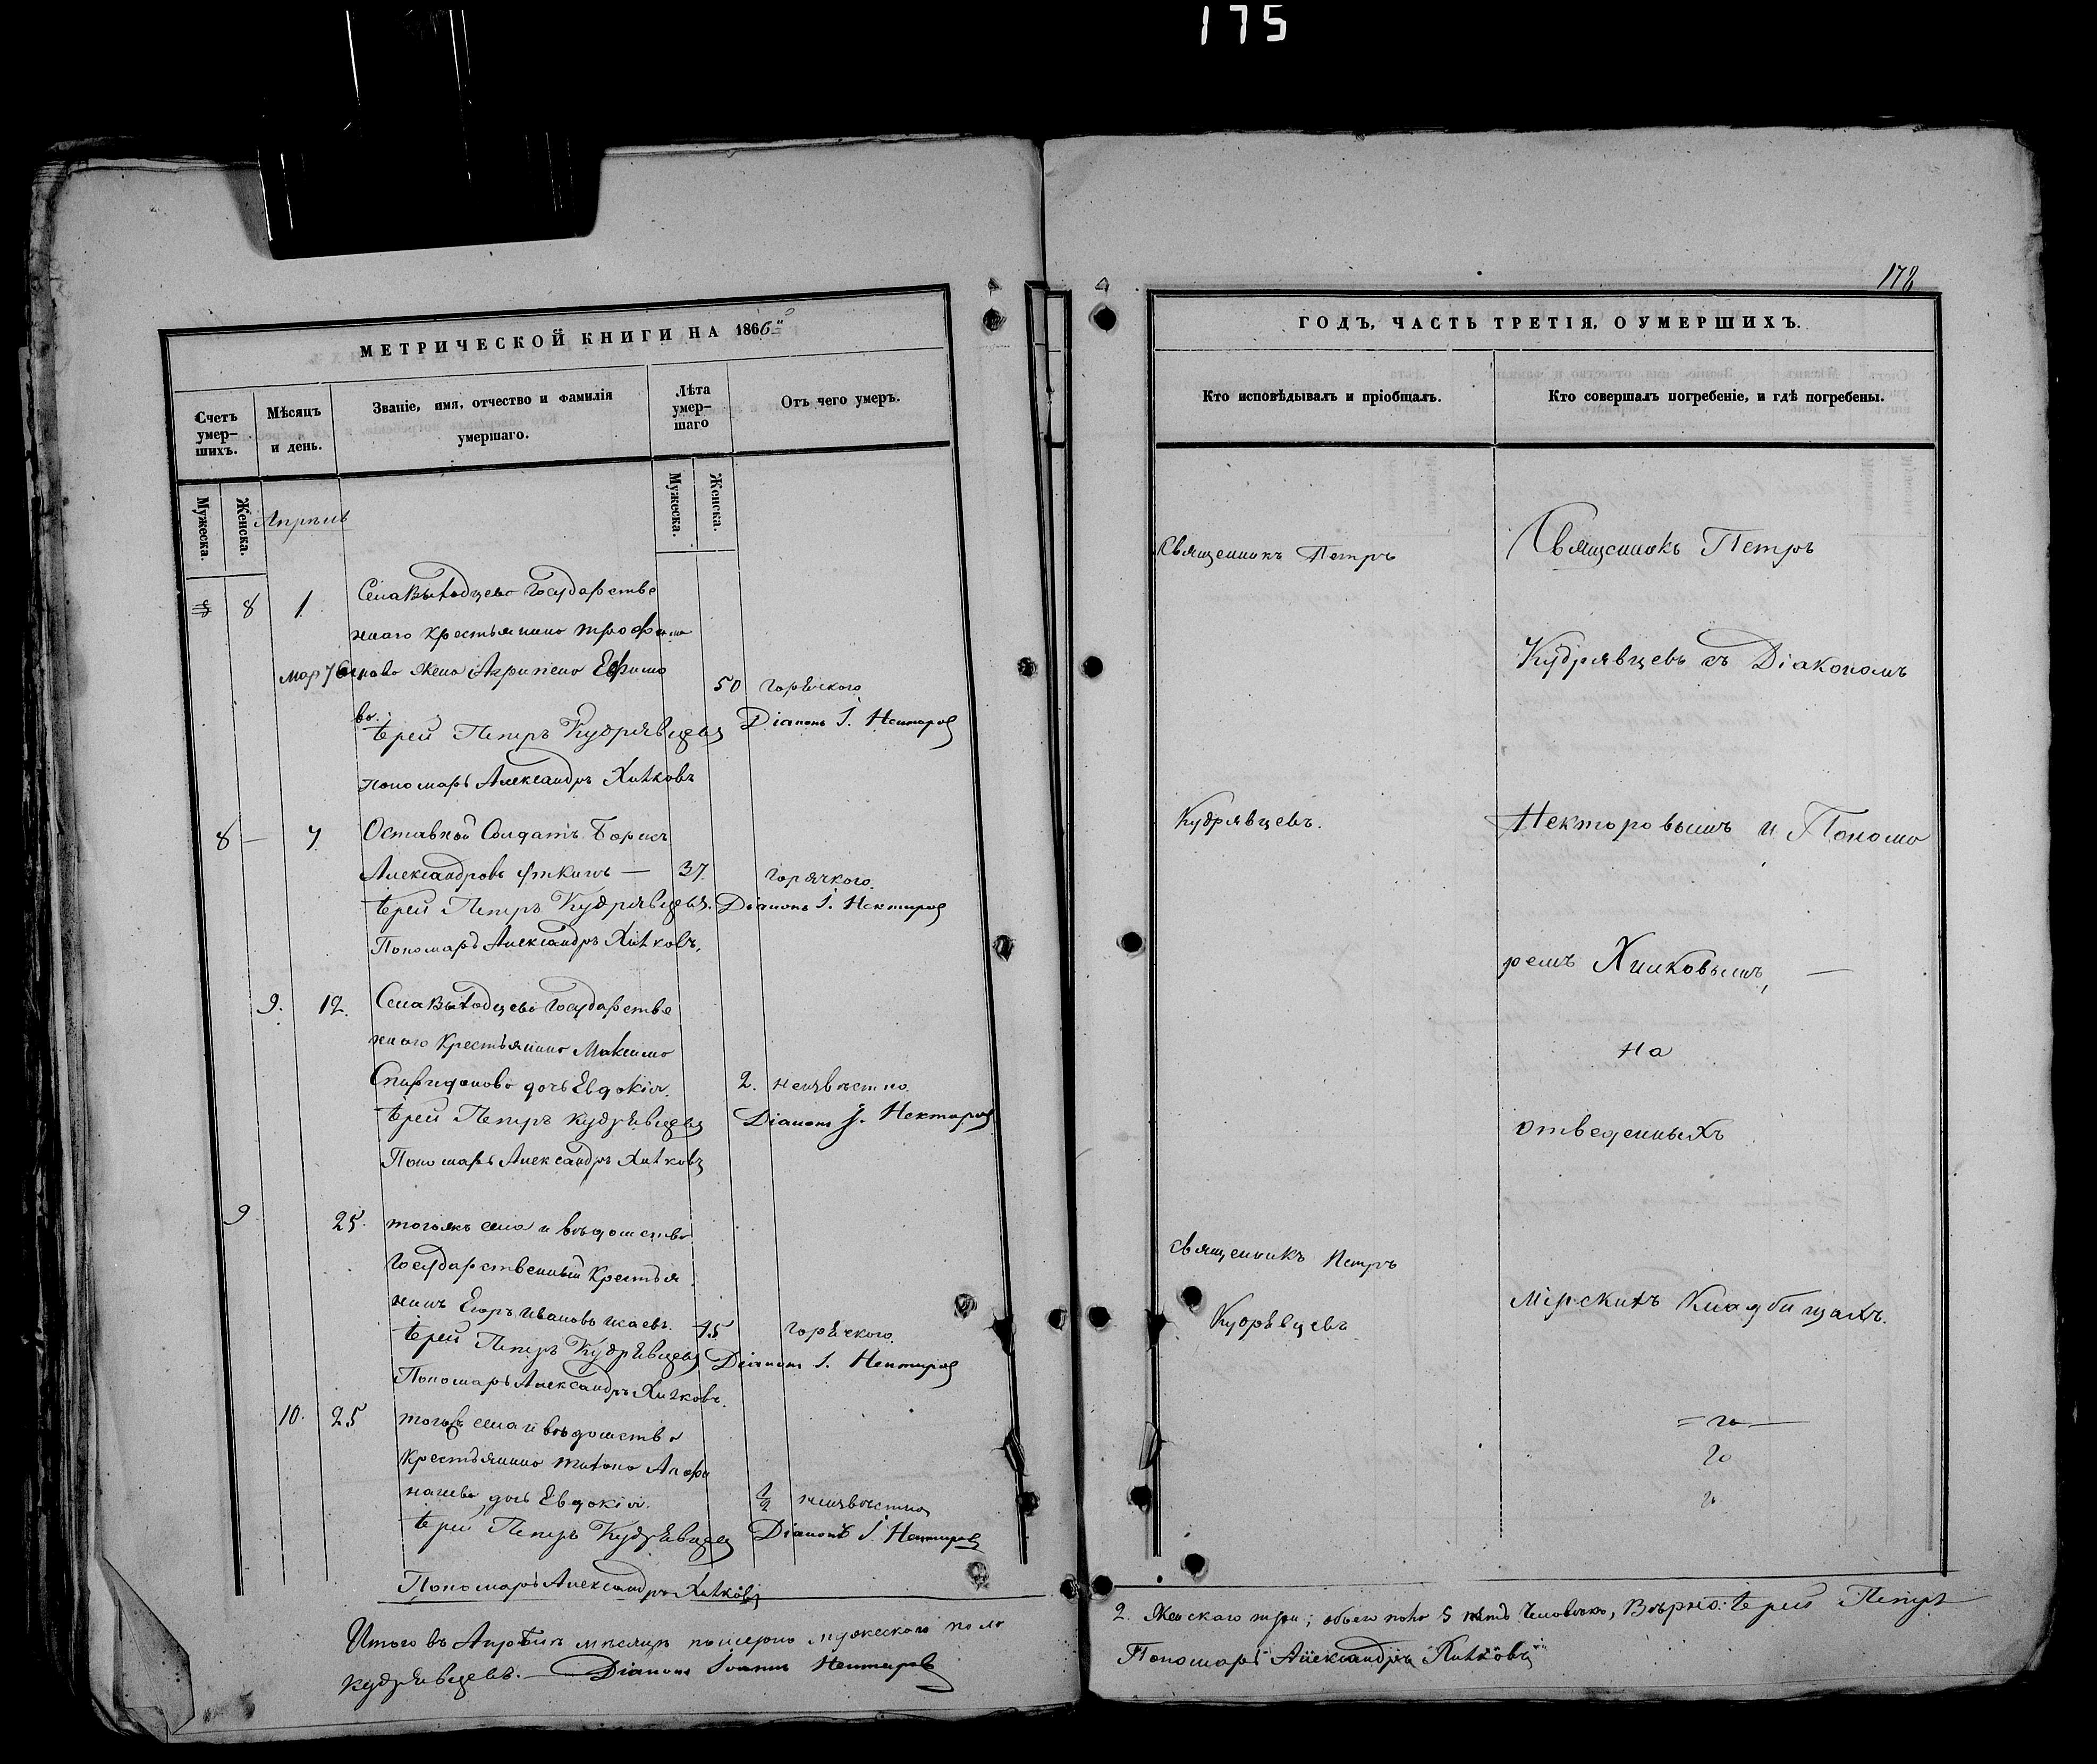 175
178
МЕТРИЧЕСКОЙ КНИГИ НА 1866
Счетъ умер-
шихъ.
Мѣсяцъ
и день.
Званіе, имя, отчество и фамилія
умершаго.
Лѣта
умер-
шаго
Отъ чего умеръ.
Мужеска.
Женска.
Мужеска.
Женска.
Апрѣль
8 8 1 Села Государстве
ннаго крестьянина
жена Агрипена Ефимо
ва. 50 горячкого
Іерей Петръ Кудрявцевъ Діаконъ І. Нектаровъ
пономарь Александръ Хилковъ
8 — 7 Оставной Солдатъ Борисъ
Александровъ — 37. горячкого.
Іерей Петръ Кудрявцевъ. Діаконъ І. Нектаровъ
Пономарь Александръ Хилковъ.
9. 12. Села Государстве
ннаго Крестьянина Максима
Спиридонова дочь Евдокія. 2. неизвѣстно.
Іерей Петръ Кудрявцевъ Діаконъ І. Нектаровъ
Пономарь Александръ Хилковъ
9 25. тогожъ села и вѣдомства
Государственный Крестья
нинъ Егоръ Ивановъ 45 горячкого.
Іерей Петръ Кудрявцевъ Діаконъ І. Нектаровъ
Пономарь Александръ Хилковъ.
10. 25 тогожъ села и вѣдомства
крестьянина
дочь Евдокія. 1/2 неизвѣстно
Іерей Петръ Кудрявцевъ Діаконъ І. Нектаровъ
Пономарь Александръ Хилковъ
Итого въ Апрѣлѣ мѣсяцѣ померло мужескаго пола
кудрявцевъ. — Діаконъ Іоаннъ Нектаровъ
ГОДЪ, ЧАСТЬ ТРЕТІЯ, О УМЕРШИХЪ.
Кто исповѣдывалъ и пріобщалъ.
Кто совершалъ погребеніе, и гдѣ погребены.
Священникъ Петръ
Кудрявцевъ.
священникъ Петръ
Кудрявцевъ
Священикъ Петръ
Кудрявцевъ съ Діакономъ
Нектаровымъ и Понома
ремъ Хилковымъ, —
на
отведенныхъ
мірскихъ кладбищахъ.
2. Женскаго три; обоего пола 5 пять Человѣкъ, Вѣрно: Іерей Петръ
Пономарь Александръ Хилковъ